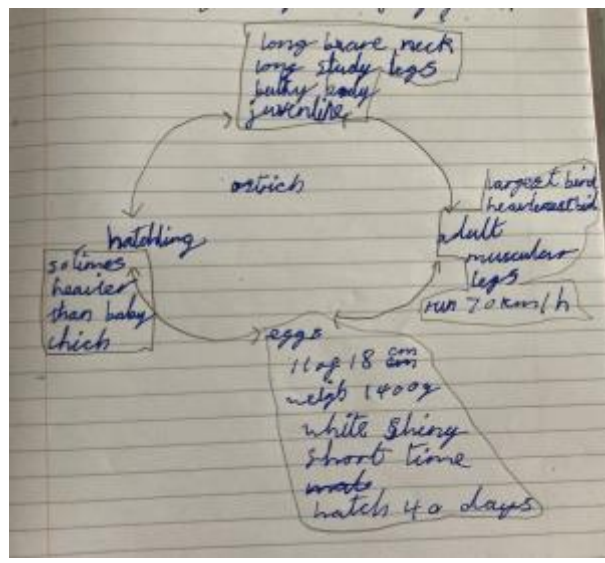 long brare neck
long study legs
bulky body
juvenlire
ostrich
largest bird
heaviest bird
adult
muscular
legs
run 70 km/h
hatchling
50 times
heavier
than baby
chich
eggs
18 cm
weigh 1400g
white shiny
short time
hatch 40 days